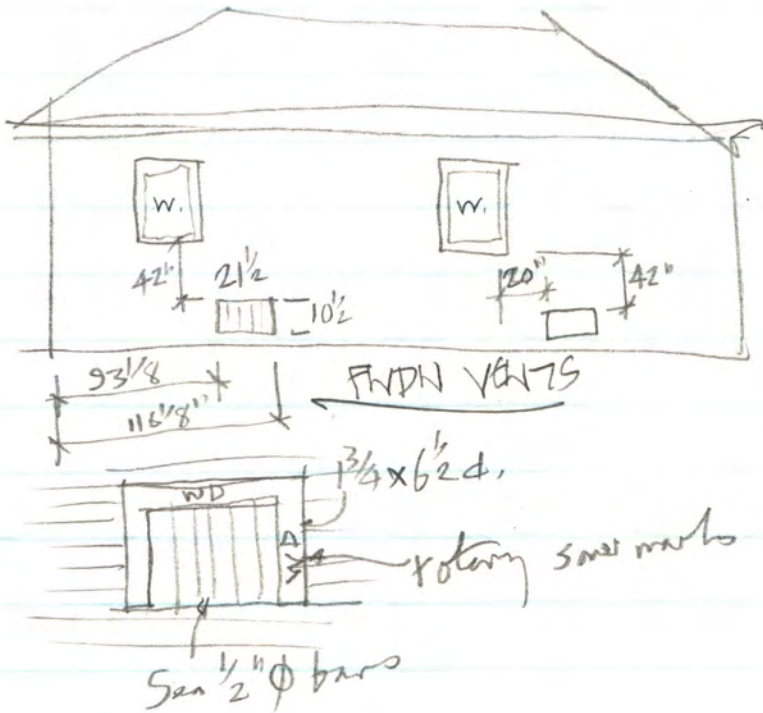 W.
W.
42"
21 1/2
10 1/2
20"
42"
93 1/8
116 1/8"
FNDN VENTS
WD
1 3/4 x 6 1/2
rotary saw marks
1/2" Φ bars